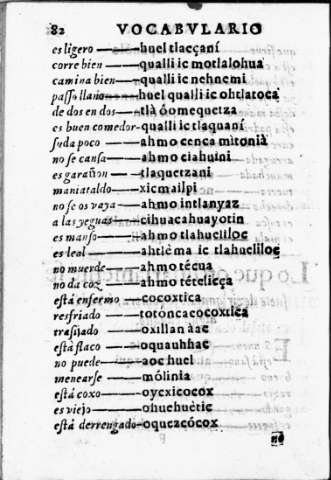 82 VOCABVLARIO
es ligero — huel tlacçaní
corre bien — qualli ic motlalohua
camina bien — qualli ic nehnemi
passo llano — huel qualli ic ohtlatoca
de dos en dos — tlà óomequetza
es buen comedor — qualli ic tlaquaní
suda poco — ahmo cenca mitonià
no se cansa — ahmo ciahuini
es garañon — tlaquetzani
maniataldo — xicmailpi
no se os vaya — ahmo intlanyaz
a las yeguas — cihuacahuayotin
es manso — ahmo tlahueliloc
es leal — ahtlèma ic tlahueliloc
no muerde — ahmo técua
no da coz — ahmo tételicça
está enfermo — cocoxtica
resfriado — totóncacocoxilca
trasijado — oxillan àac
está flaco — oquauhhac
no puede — aoc huel
menearse — mólinia
está coxo — oycxicocox
es viejo — ohuehuètic
está derrengado — oquezcócox